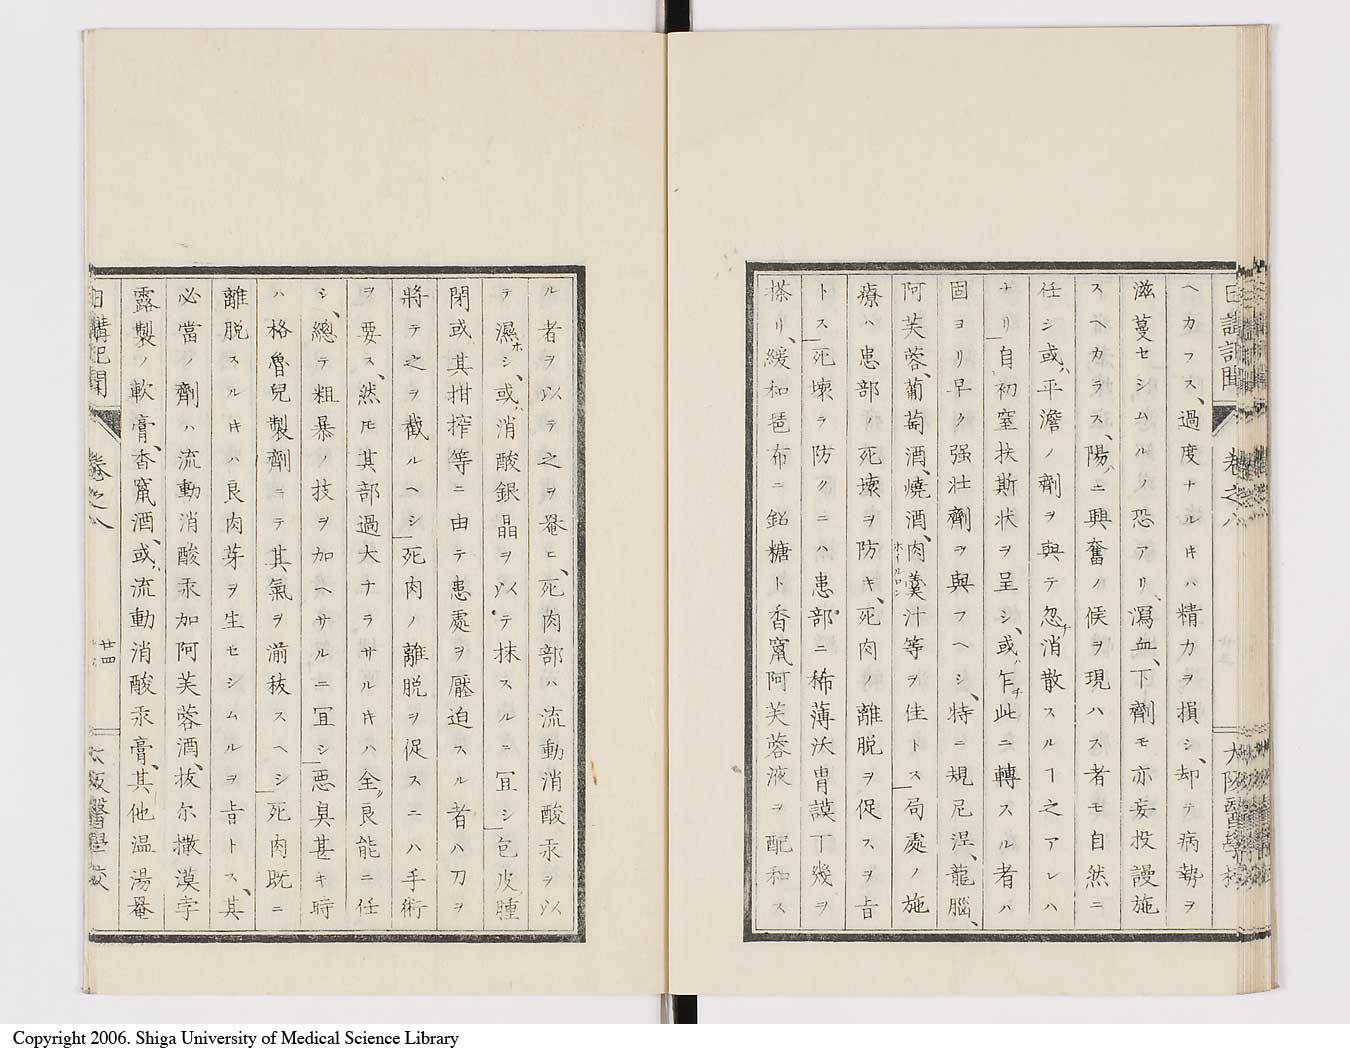 日講記聞 卷之八 大阪醫學校
ヘカラス、過度ナルキハ精力ヲ損シ、却テ病勢ヲ
滋蔓セシムルノ恐アリ、瀉血、下劑モ亦妄投謾施
スヘカラス、陽ニ興奮ノ候ヲ現ハス者モ自然ニ
任シ或ハ平澹ノ劑ヲ與テ忽チ消散スルヿ之アレハ
ナリ自初窒扶斯状ヲ呈シ、或ハ乍チ此ニ轉スル者ハ
固ヨリ早ク强壮劑ヲ與フヘシ、特ニ規尼涅、龍腦、
阿芙蓉、葡萄酒、燒酒、肉羹汁等ヲ佳トス局處ノ施
ホイルロン
療ハ患部ノ死壞ヲ防キ、死肉ノ離脱ヲ促スヲ旨
トス死壞ヲ防クニハ患部ニ稀薄沃胃謨丁幾ヲ
搽リ、緩和琶布ニ鉛糖ト香竄阿芙蓉液ヲ配和ス
ル者ヲ以テ之ヲ罨ヒ、死肉部ハ流動消酸汞ヲ以
テ濕ホシ、或ハ消酸銀晶ヲ以テ抹スルニ冝シ包皮腫
閉或其拑搾等ニ由テ患處ヲ壓迫スル者ハ刀ヲ
將テ之ヲ截ルヘシ死肉ノ離脱ヲ促スニハ手術
ヲ要ス、然𪜈其部過大ナラサルキハ全ク良能ニ任
シ、總テ粗暴ノ技ヲ加ヘサルニ冝シ惡臭甚キ時
ハ格魯兒製劑ニテ其氣ヲ湔祓スヘシ死肉既ニ
離脱スルキハ良肉芽ヲ生セシムルヲ旨トス、其
必當ノ劑ハ流動消酸汞加阿芙蓉酒、拔尔撒謨孛
露製ノ軟膏、香竄酒、或ハ流動消酸汞膏、其他温湯罨
日講記聞 卷之八 廿四 大阪醫學校